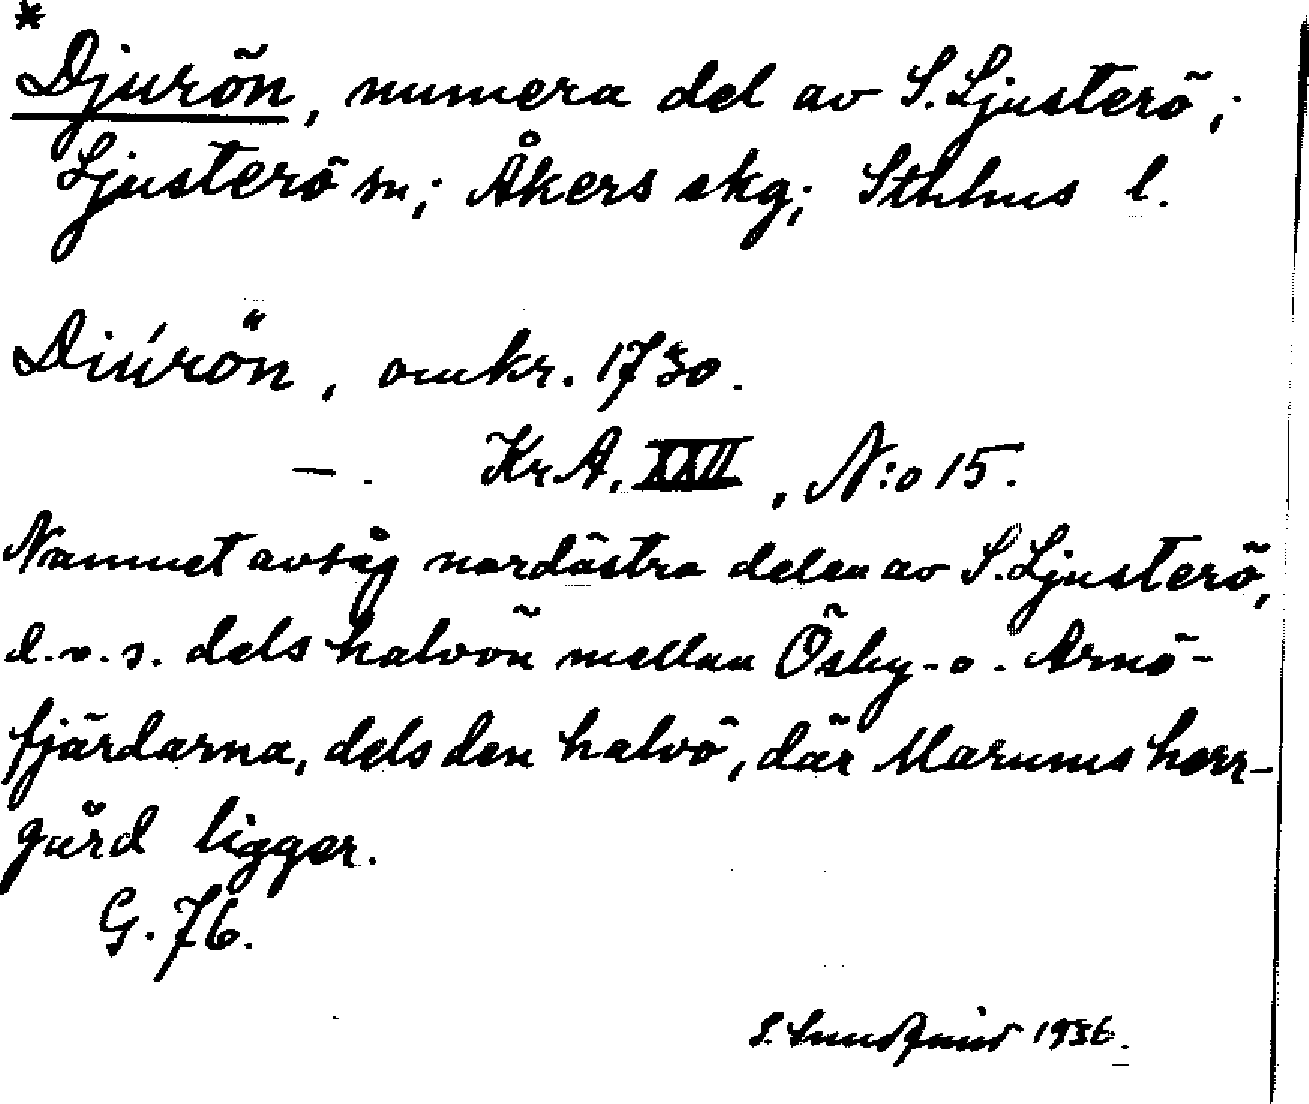 *
Djurön, numera del av S. Ljusterö;
Ljusterö sn; Åkers skg; Sthlms l.
Diúrön, omkr. 1730.
—. Kr.A. XXII, N:o 15.
Namnet avsåg nordöstra delen av S. Ljusterö,
d.v.s. dels halvön mellan Ösby- o. Arnö-
fjärdarna, dels den halvö, där Marums herr-
gård ligger.
G. 76.
S. 1936.